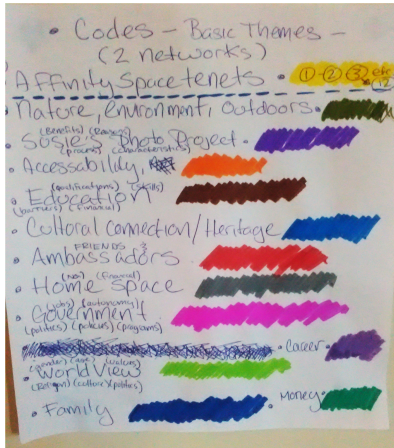 • Codes - Basic Themes -
(2 networks)
• Affinity Space tenets • ① - ② ③ etc
12
• Nature, environment, outdoors •
(Benefits) (Reasons)
• Susie's Photo Project •
(process) (characteristics)
• Accessability,
(qualifications) (skills)
• Education
(barriers) (financial)
• Cultoral connection/Heritage
FRIENDS &
• Ambassadors
(financial)
• Home space
(jobs) (autonomy)
• Government
(politics) (policies) (programs)
• Career •
(values)
• World View
(Religion) (culture) (politics)
• Family • Money •